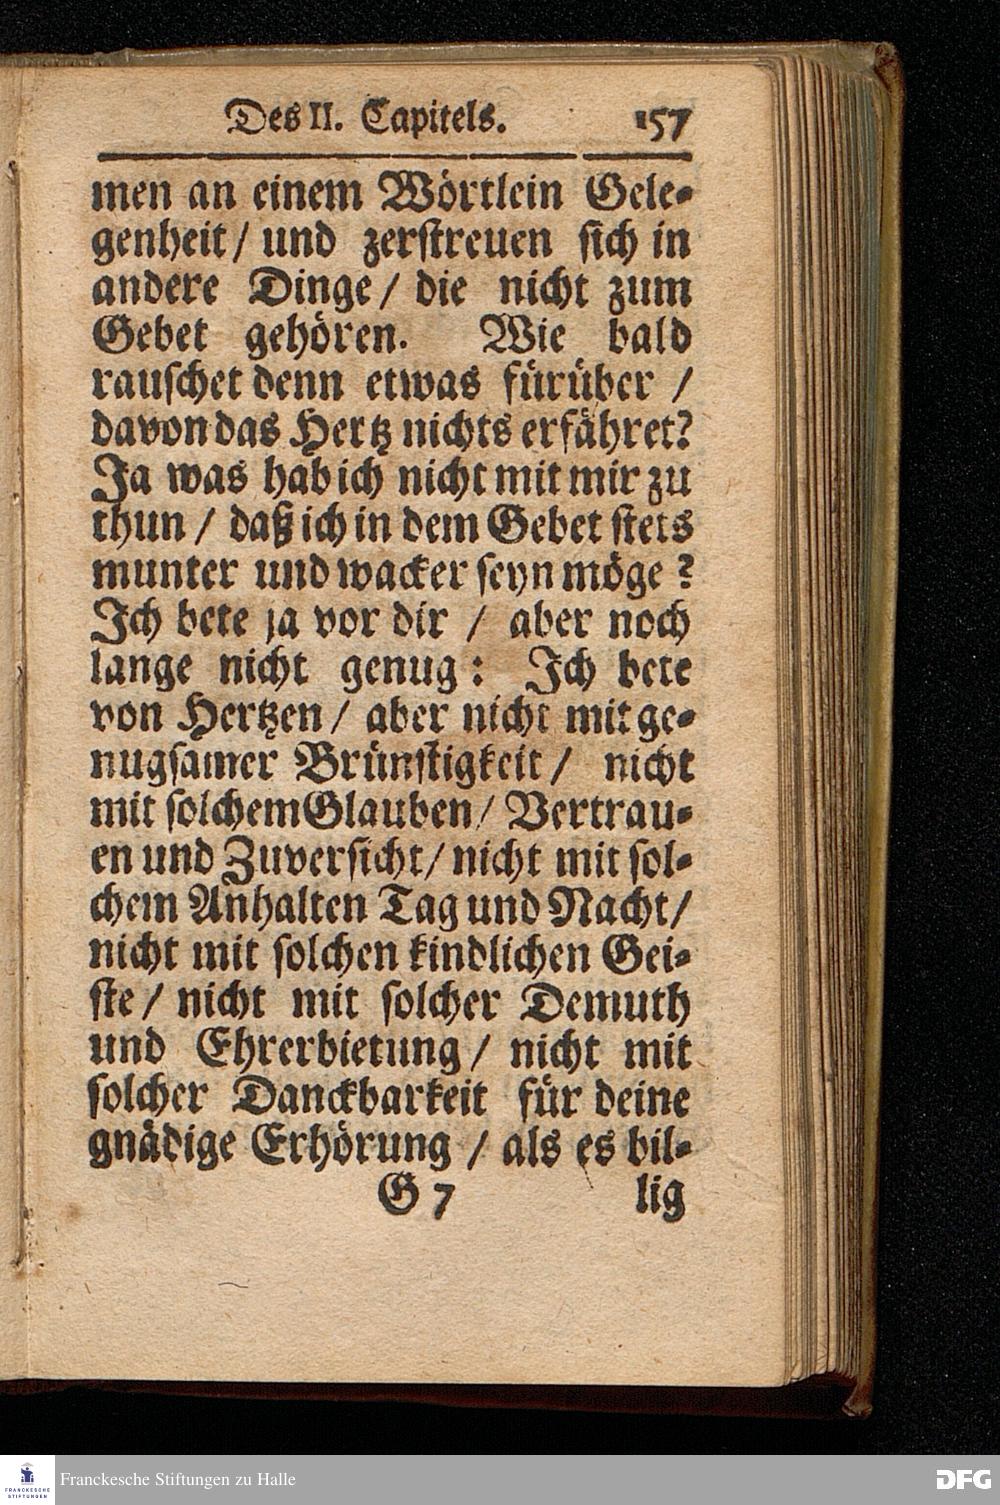 Des II. Capitels. 157
men an einem Wörtlein Gele-
genheit / und zerstreuen sich in
andere Dinge / die nicht zum
Gebet gehören. Wie bald
rauschet denn etwas fürüber /
davon das Hertz nichts erfähret?
Ja was hab ich nicht mit mir zu
thun / daß ich in dem Gebet stets
munter und wacker seyn möge?
Ich bete ja vor dir / aber noch
lange nicht genug: Ich bete
von Hertzen / aber nicht mit ge-
nugsamer Brünstigkeit / nicht
mit solchem Glauben / Vertrau-
en und Zuversicht / nicht mit sol-
chem Anhalten Tag und Nacht /
nicht mit solchen kindlichen Gei-
ste / nicht mit solcher Demuth
und Ehrerbietung / nicht mit
solcher Danckbarkeit für deine
gnädige Erhörung / als es bil-
G 7 lig
FRANCKESCHE STIFTUNGEN
Franckesche Stiftungen zu Halle
DFG